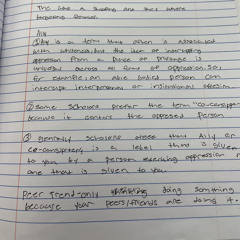 The like a shooting and that's where
targeting
Ally
① Ally is a term that often is associated
with whiteness, but the idea of interrupting
oppression from a place of privilege is
universal across all forms of oppression. So,
for example, an able bodied person can
interrupt interpersonal or institutional ableism.
② some scholars prefer the term "co-conspirator"
because it centers the oppressed person
③ generally scholars agree that Ally or
co-conspirator is a label that is given
to you by a person experiencing oppression
one that is given to you
Peer Trend-only doing something
because your peers/friends are doing it.